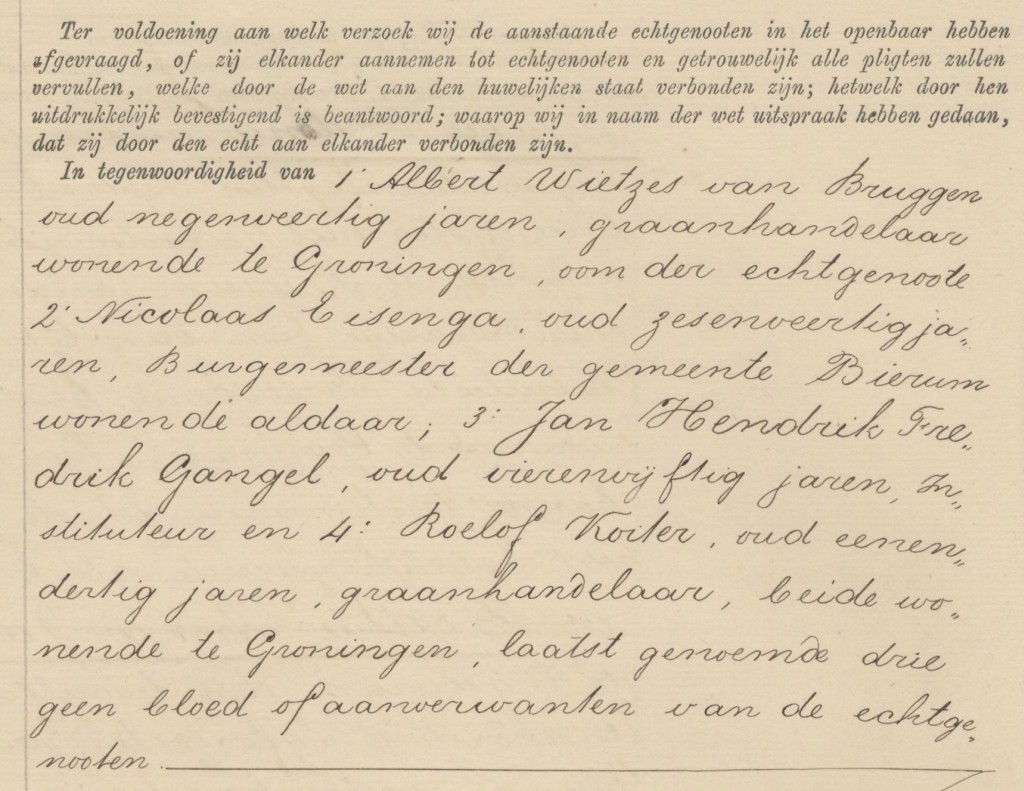 Ter voldoening aan welk verzoek wij de aanstaande echtgenooten in het openbaar hebben
afgevraagd, of zij elkander aannemen tot echtgenooten en getrouwelijk alle pligten zullen
vervullen, welke door de wet aan den huwelijken staat verbonden zijn; hetwelk door hen
uitdrukkelijk bevestigend is beantwoord; waarop wij in naam der wet uitspraak hebben gedaan,
dat zij door den echt aan elkander verbonden zijn.
In tegenwoordigheid van 1° Albert Wietzes van Bruggen
oud negenveertig jaren, graanhandelaar
wonende te Groningen, oom der echtgenoote
2° Nicolaas Eisenga, oud zesenveertig ja„
ren, Burgemeester der gemeente Bierum
wonende aldaar; 3° Jan Hendrik Fre„
drik Gangel, oud vierenvijftig jaren, In„
stituteur en 4° Roelof Koiter, oud eenen„
dertig jaren, graanhandelaar, beide wo„
nende te Groningen, laatst genoemde drie
geen bloed of aanverwanten van de echtge„
nooten.